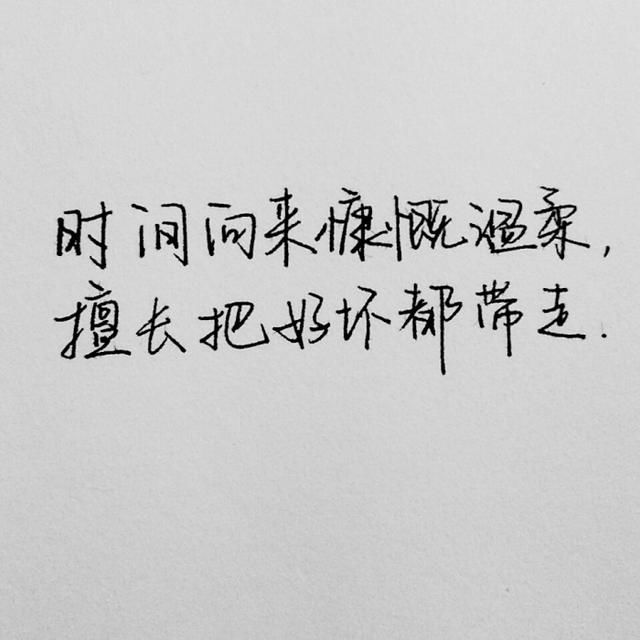 时间向来慷慨温柔，
擅长把好坏都带走.